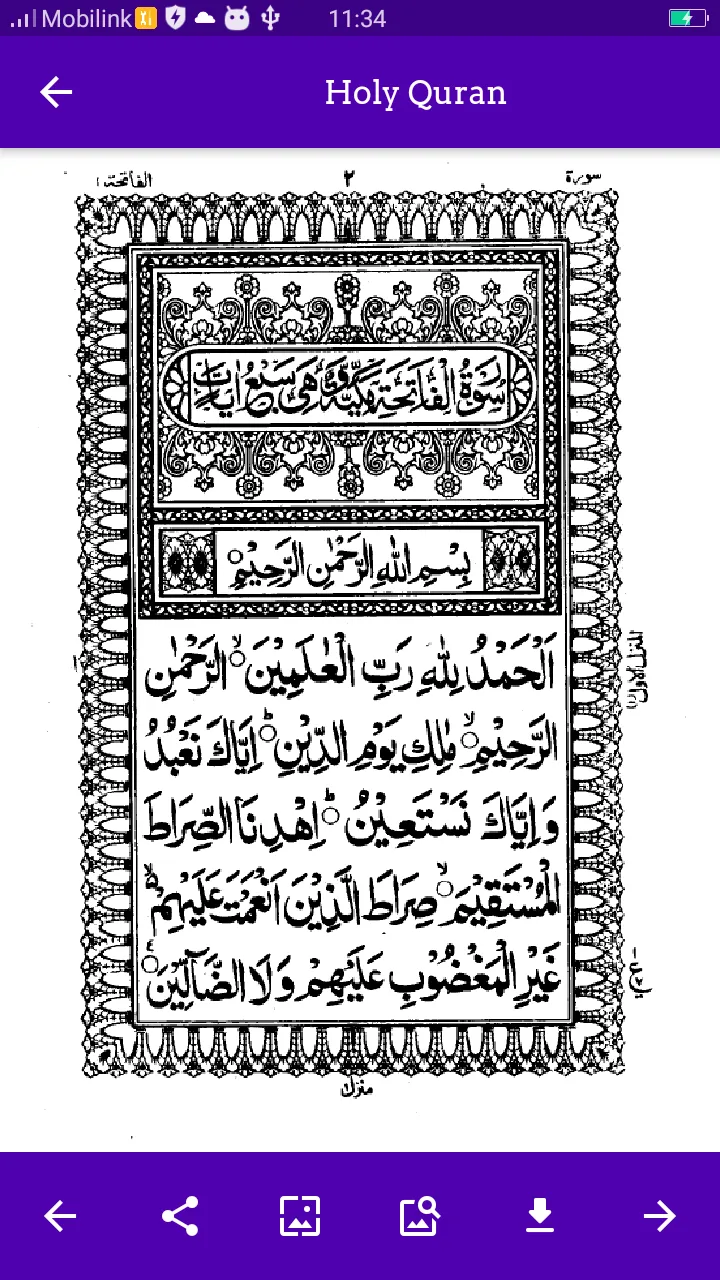 Mobilink 11:34
Holy Quran
سورة ٢ الفاتحة ١
سُوْرَةُ الْفَاتِحَةِ مَكِّيَّةٌ وَّهِىَ سَبْعُ اٰيَاتٍ
بِسْمِ اللّٰهِ الرَّحْمٰنِ الرَّحِيْمِ○
اَلْحَمْدُ لِلّٰهِ رَبِّ الْعٰلَمِيْنَ○ۙ الرَّحْمٰنِ
الرَّحِيْمِ○ۙ مٰلِكِ يَوْمِ الدِّيْنِ○ؕ اِيَّاكَ نَعْبُدُ
وَاِيَّاكَ نَسْتَعِيْنُ○ؕ اِهْدِنَا الصِّرَاطَ
الْمُسْتَقِيْمَ○ۙ صِرَاطَ الَّذِيْنَ اَنْعَمْتَ عَلَيْهِمْ
غَيْرِ الْمَغْضُوْبِ عَلَيْهِمْ وَلَا الضَّآلِّيْنَ○
المنزل الاول
منزل